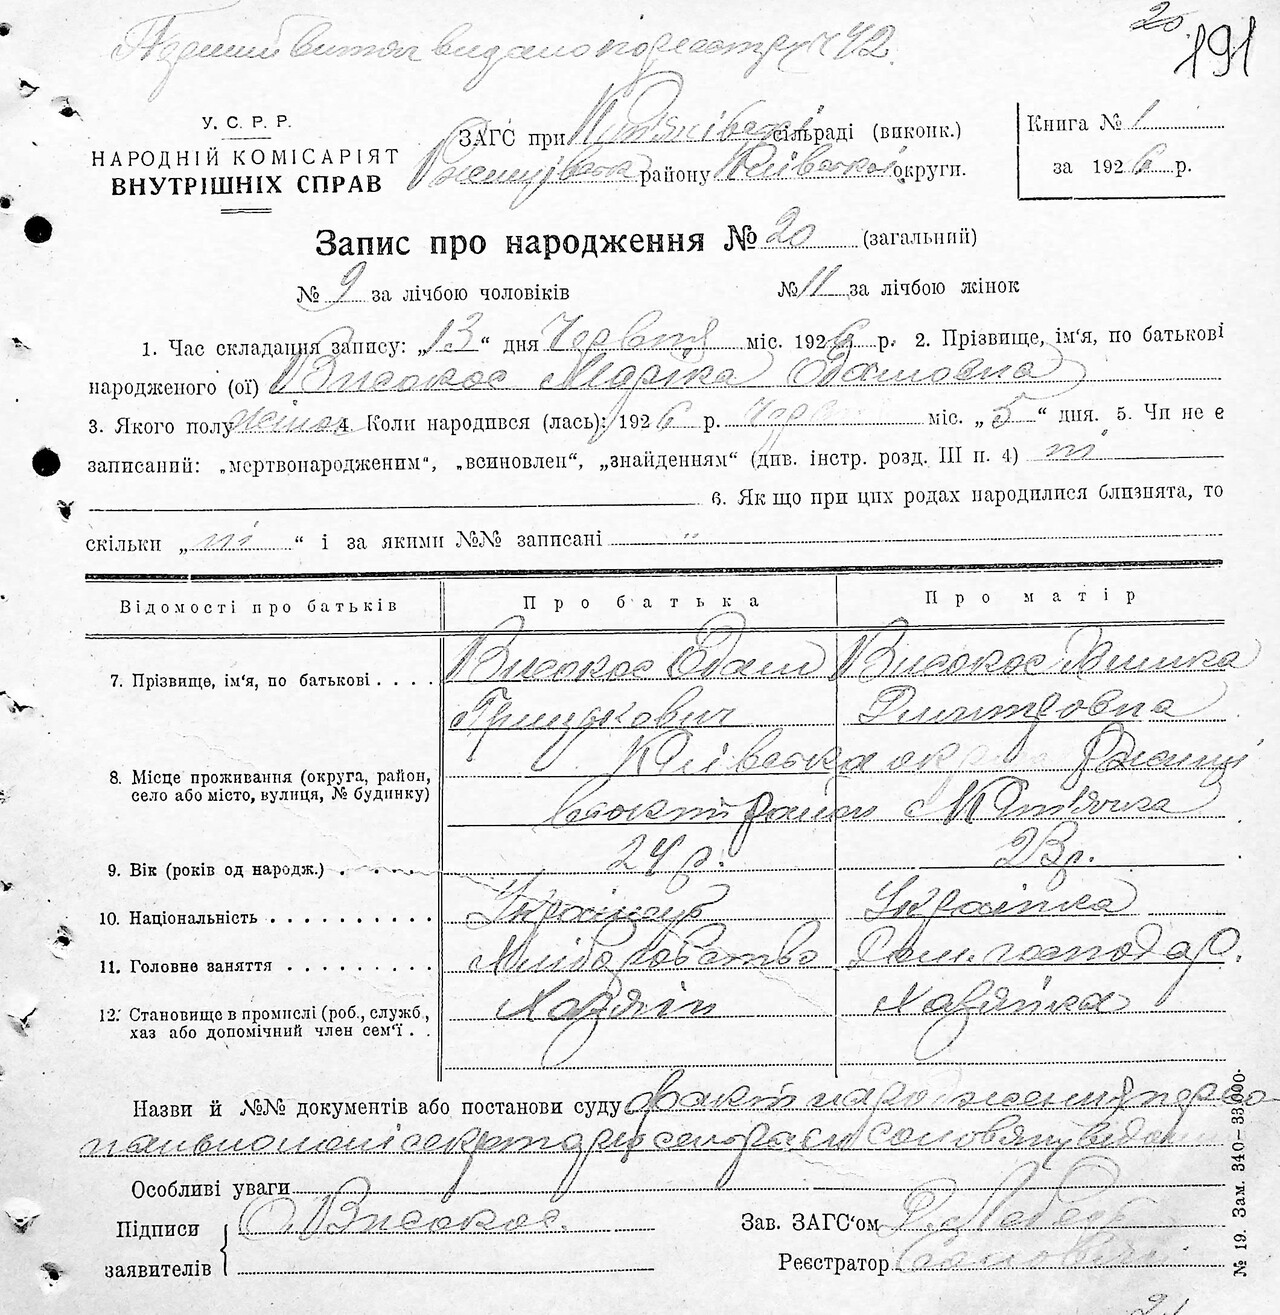 видано по реєстру Ч 42.
20.
191
У. С. Р. Р.
НАРОДНІЙ КОМІСАРІЯТ
ВНУТРІШНІХ СПРАВ
ЗАГС при сільраді (виконк.)
району Київської округи.
Книга № 1
за 1926 р.
Запис про народження № 20 (загальний)
№ 9 за лічбою чоловіків № 11 за лічбою жінок
1. Час складання запису: „13“ дня Червня міс. 1926 р. 2. Прізвище, ім'я, по батькові
народженого (ої) Високос Марійка Одамовна
3. Якого полу жіноч 4. Коли народився (лась): 1926 р. Червня міс. „5“ дня. 5. Чи не є
записаний: „мертвонародженим“, „всиновлен“, „знайденням“ (див. інстр. розд. III п. 4) ні
6. Як що при цих родах народилися близнята, то
скільки „ні“ і за якими №№ записані "
Відомості про батьків Про батька Про матір
7. Прізвище, ім'я, по батькові . . . . Високос Одам Високос
Грицкович Дмитровна
8. Місце проживання (округа, район,
село або місто, вулиця, № будинку)
Київська округа Ржищі
вський район
9. Вік (років од народж.) . . . . . 24 р. 23 р.
10. Національність . . . . . . . . . . Українець Українка
11. Головне заняття . . . . . . . . . Хліборобство Дом. господар.
12. Становище в промислі (роб., служб.,
хаз або допомічний член сем'ї . .
Хазяїн Хазяйка
Назви й №№ документів або постанови суду факт народження
секретарю сільради
Особливі уваги
Підписи
заявителів
О. Високос.
Зав. ЗАГС'ом
Реєстратор
№ 19. Зам. 340—33.000.